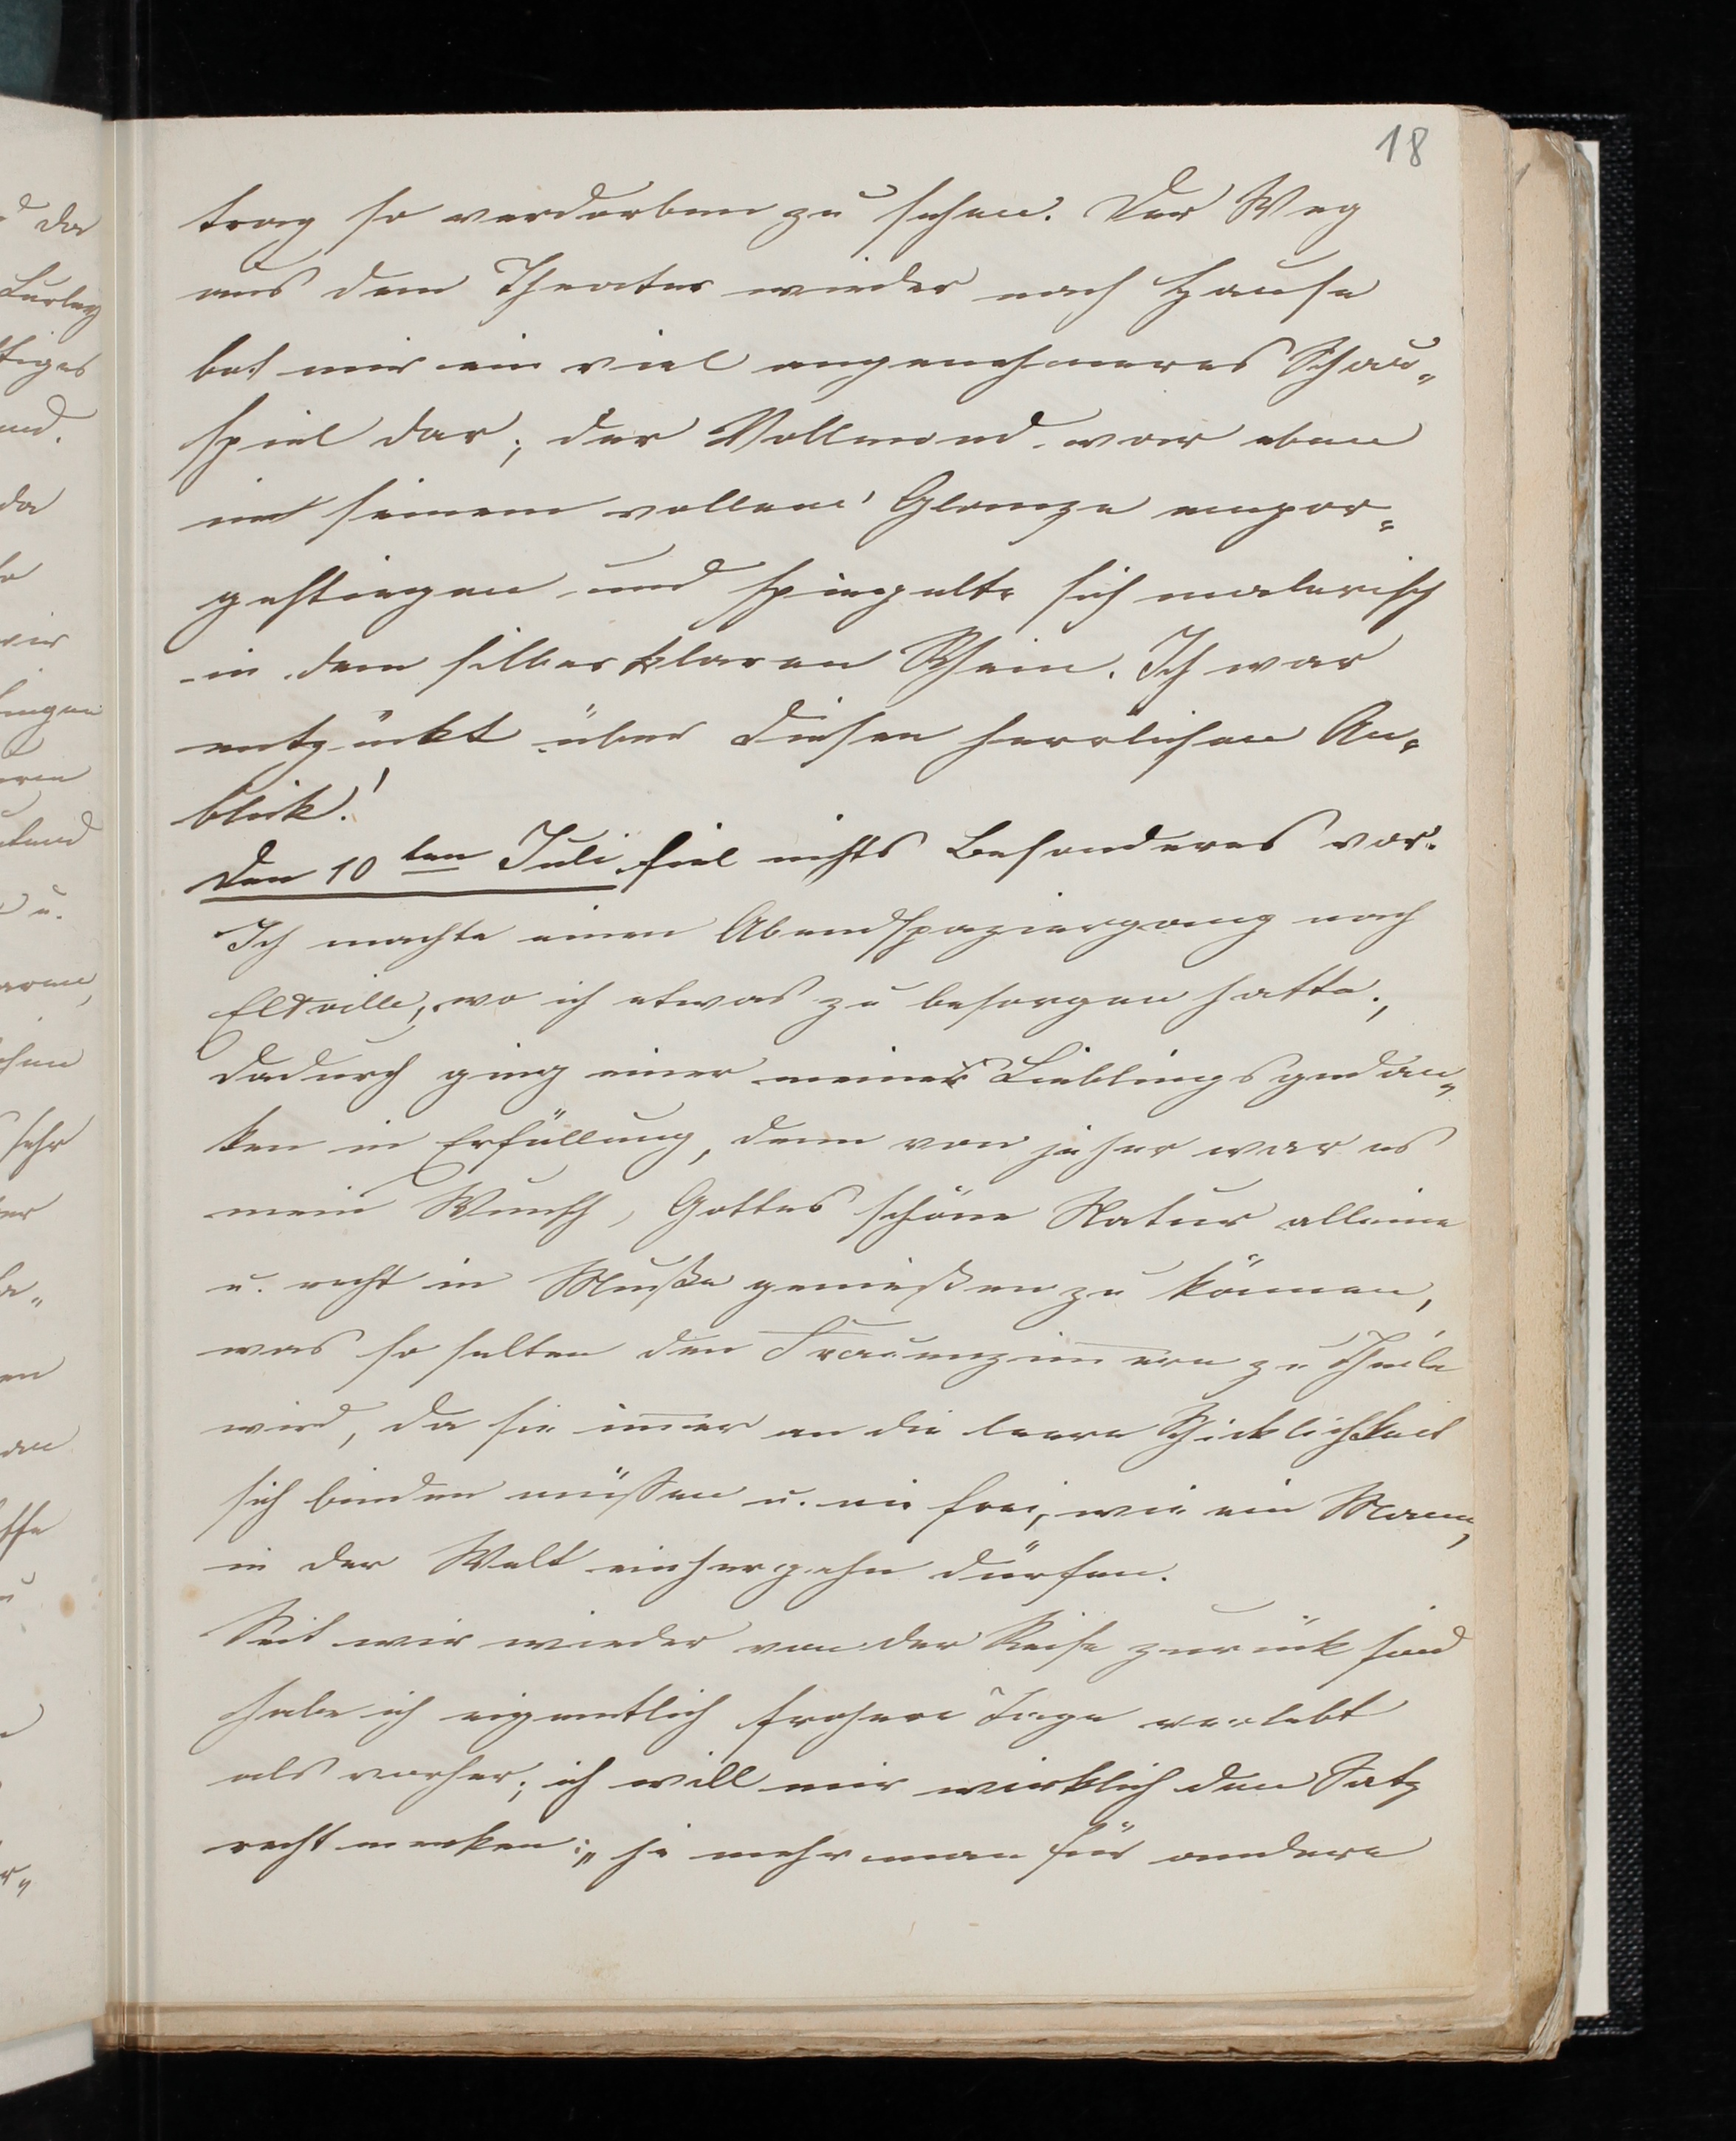 18
trag so verdorben zu sehen. Der Weg
aus dem Theater wieder nach Hause
bot mir ein viel angenehmeres Schau„
spiel dar; der Vollmond war eben
in seinem vollen Glanze empor„
gestiegen und spiegelte sich malerisch
in dem silberklaren Rhein. Ich war
entzückt über diesen herrlichen An„
blick!
Den 10ten Juli fiel nichts Besonderes vor.
Ich machte einen Abendspaziergang nach
Eltville, wo ich etwas zu besorgen hatte;
dadurch ging einer meiner Lieblingsgedan„
ken in Erfüllung, denn von jeher war es
mein Wunsch, Gottes schöne Natur alleine
u. recht in Muße genießen zu können,
was so selten den Frauenzim̅ern zu Theile
wird, da sie im̅er an die leere Schicklichkeit
sich binden müssen u. nie frei, wie ein Mann,
in der Welt einhergehn dürfen.
Seit wir wieder von der Reise zurück sind
habe ich eigentlich frohere Tage verlebt
als vorher; ich will mir wirklich den Satz
recht merken: „je mehr man für andere
da
Lurley
tiges
und.
da
wir
u.
sehr